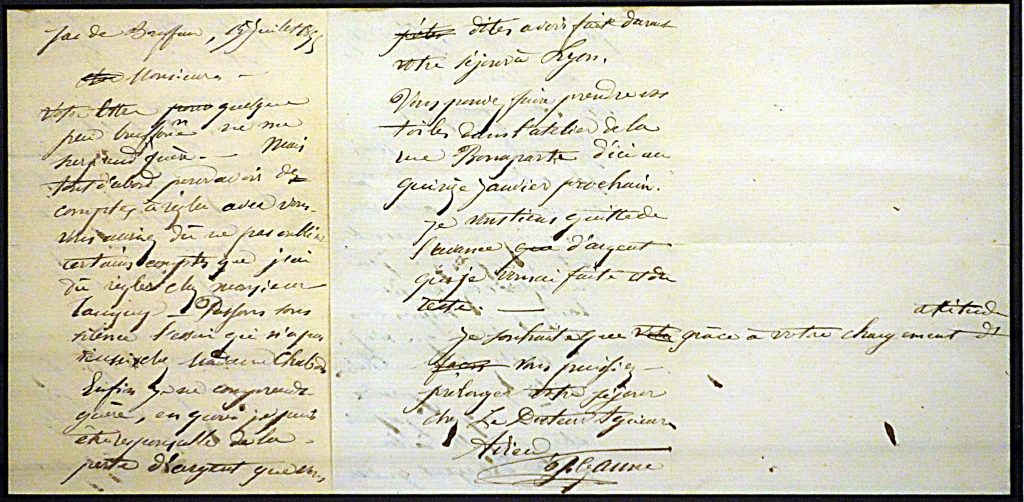 Jas de Bouffan, 15 Juillet 18
Monsieur —
votre lettre quelque
peu ne me
surprend guère. — Mais
tout d'abord pour avoir des
comptes à régler avec vous,
vous auriez dû ne pas oublier
certains comptes que j'ai
dû régler chez monsieur
Tanguy — Passons sous
silence l'essai qui n'a pas
réussi chez Madame Chabod
Enfin je ne comprends
guère, en quoi je puis
être responsable de la
perte d'argent que vous
dites avoir faite durant
votre séjour à Lyon.
Vous pouvez faire prendre vos
toiles dans l'atelier de la
rue Bonaparte d'ici au
quinze janvier prochain.
je vous tiens quitte de
l'avance que d'argent
que je vous ai faite et du
reste. —
attitude
je souhaite que grâce à votre changement d'
façon vous puissiez —
prolonger votre séjour
chez Le Docteur Aguiar.
Adieu
P. Cezanne